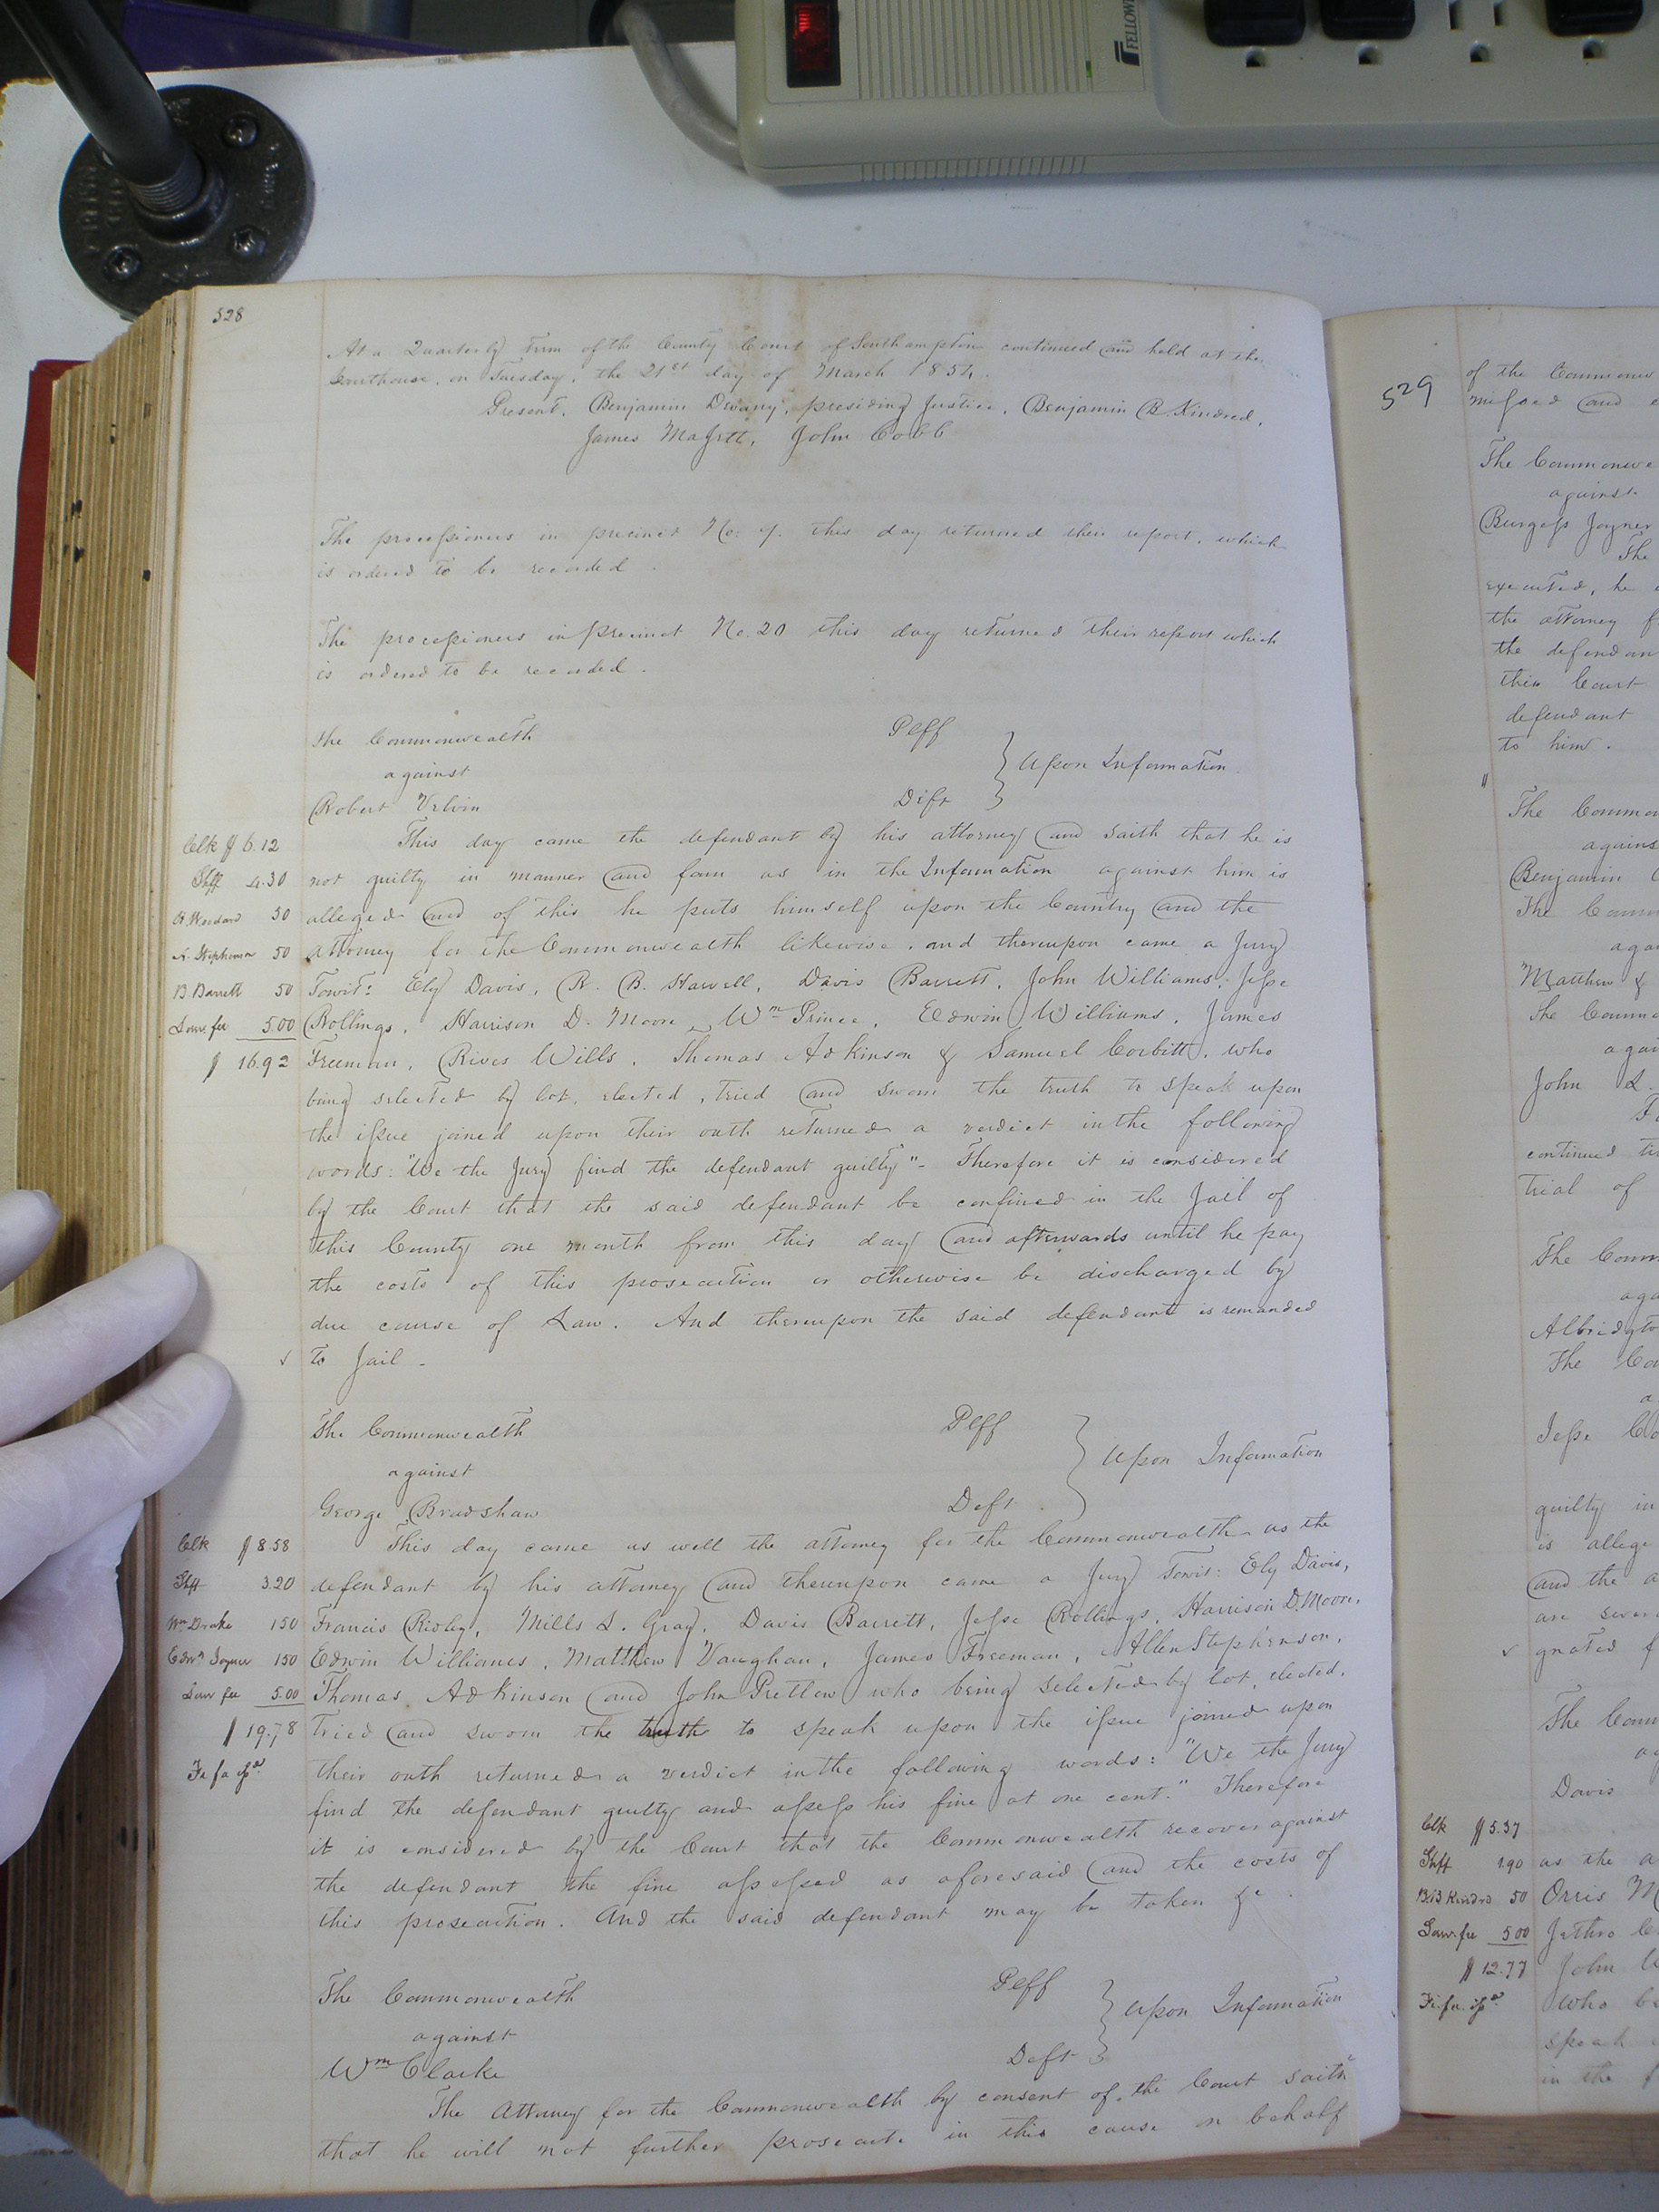 FELLOW
528
At a Quarterly Term of the County Court of Southampton continued and held at the
Courthouse, on Tuesday, the 21st day of March 1854.
Present, Benjamin Devany, presiding Justice, Benjamin B. Kindred,
James Majett, John Cobb
The processioners in precinct No: 9. this day returned their report, which
is ordered to be recorded.
The processioners in precinct No. 20 this day returned their report which
is ordered to be recorded.
The Commonwealth Plff
against } Upon Information.
Robert Velvin Deft
Clk $ 6.12 This day came the defendant by his attorney and saith that he is
Shff 4.30 not guilty in manner and form as in the Information against him is
50 alleged and of this he puts himself upon the Country and the
A. Stephenson 50 attorney for the Commonwealth likewise, and thereupon came a Jury
B. Barrett 50 Towit: Ely Davis, R. B. Harvell, Davis Barrett, John Williams, Jesse
Law fee 5.00 Rollings, Harrison D. Moore, Wm Prince, Edwin Williams, James
$ 16.92 Freeman, Rives Wills, Thomas Adkinson & Samuel Corbitt, who
being selected by lot, elected, tried and sworn the truth to speak upon
the issue joined upon their oath returned a verdict in the following
words: "We the Jury find the defendant guilty"- Therefore it is considered
by the Court that the said defendant be confined in the Jail of
this County one month from this day and afterwards until he pay
the costs of this prosecution or otherwise be discharged by
due course of Law. And thereupon the said defendant is remanded
to Jail -
The Commonwealth Plff
against } Upon Information
George Bradshaw Deft.
Clk $ 8.58 This day came as well the attorney for the Commonwealth as the
Shff 3.20 defendant by his attorney and thereupon came a Jury Towit: Ely Davis,
Wm Drake 150 Francis Ridley, Mills L. Gray, Davis Barrett, Jesse Rollings, Harrison D. Moore,
Edwd Joyner 150 Edwin Williams, Matthew Vaughan, James Freeman, Allen Stephenson,
Law fee 5.00 Thomas Adkinson and John Pretlow who being selected by lot, elected,
$ 19.78 tried and sworn the truth to speak upon the issue joined upon
Fi fa isd their oath returned a verdict in the following words: "We the Jury
find the defendant guilty and assess his fine at one cent." Therefore
it is considered by the Court that the Commonwealth recover against
the defendant the fine assessed as aforesaid and the costs of
this prosecution. And the said defendant may be taken &c.
The Commonwealth Plff
against } Upon Information
Wm Clarke Deft
The Attorney for the Commonwealth by consent of the Court saith
that he will not further prosecute in this cause on behalf
529
of the Commonw
and
The Commonwe
against
Burgess Joyner
The
executed, he
the attorney f
the defendan
this Court
defendant
to him.
The Common
agains
Benjamin
The Comm
agai
Matthew
The Comm
agai
John L.
continued
trial of
The Comm
aga
Albridgto
The Co
a
Jesse Co
guilty in
is allege
and the a
are sever
gnated f
The Comm
ag
Davis
Clk $ 5.37
Shff 1.90 as the a
B.B Kindrd 50 Orris M
Law fee 5.00 Jethro
$ 12.77 John
Fi. fa. isd. who be
speak
in the f